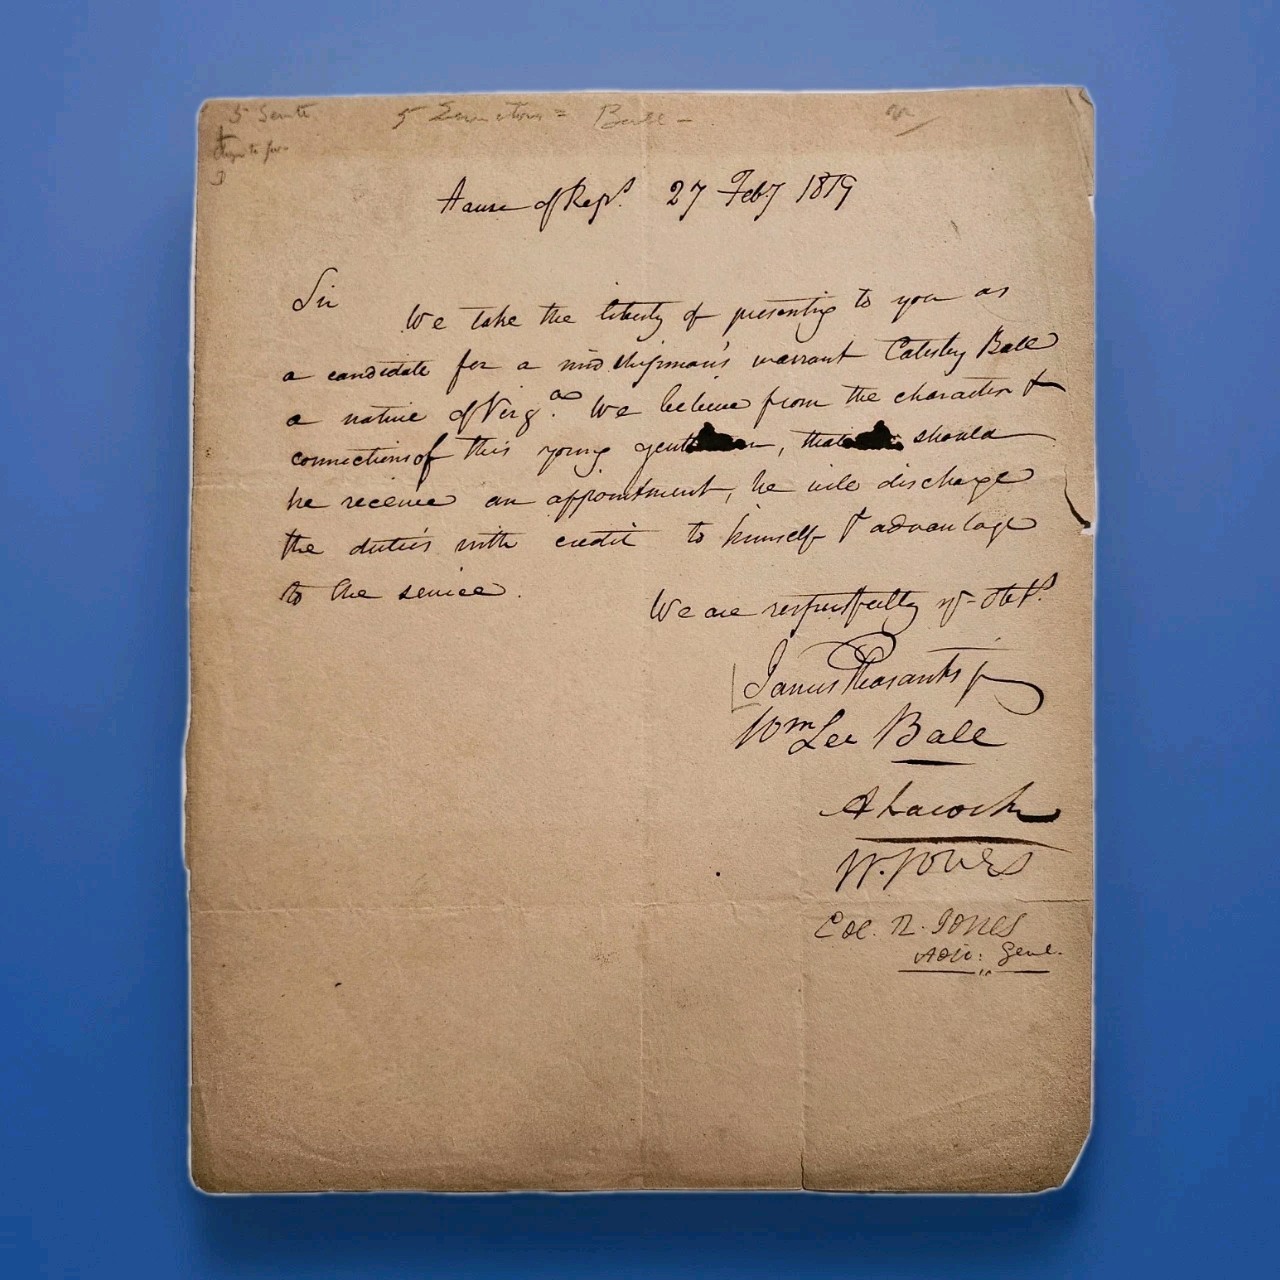 5 Senators = Ball -
House of Reps. 27 Feby 1819
Sir
We take the liberty of presenting to you as
a candidate for a midshipman's warrant Catesby Ball
a native of Virga. We believe from the character &
connections of this young gentleman, that should
he receive an appointment, he will discharge
the duties with credit to himself & advantage
to the service.
We are respectfully yr. Obt.
James Pleasants jr
Wm Lee Ball
A Lacock
W. Jones
Col. R. Jones
Adj: Genl.